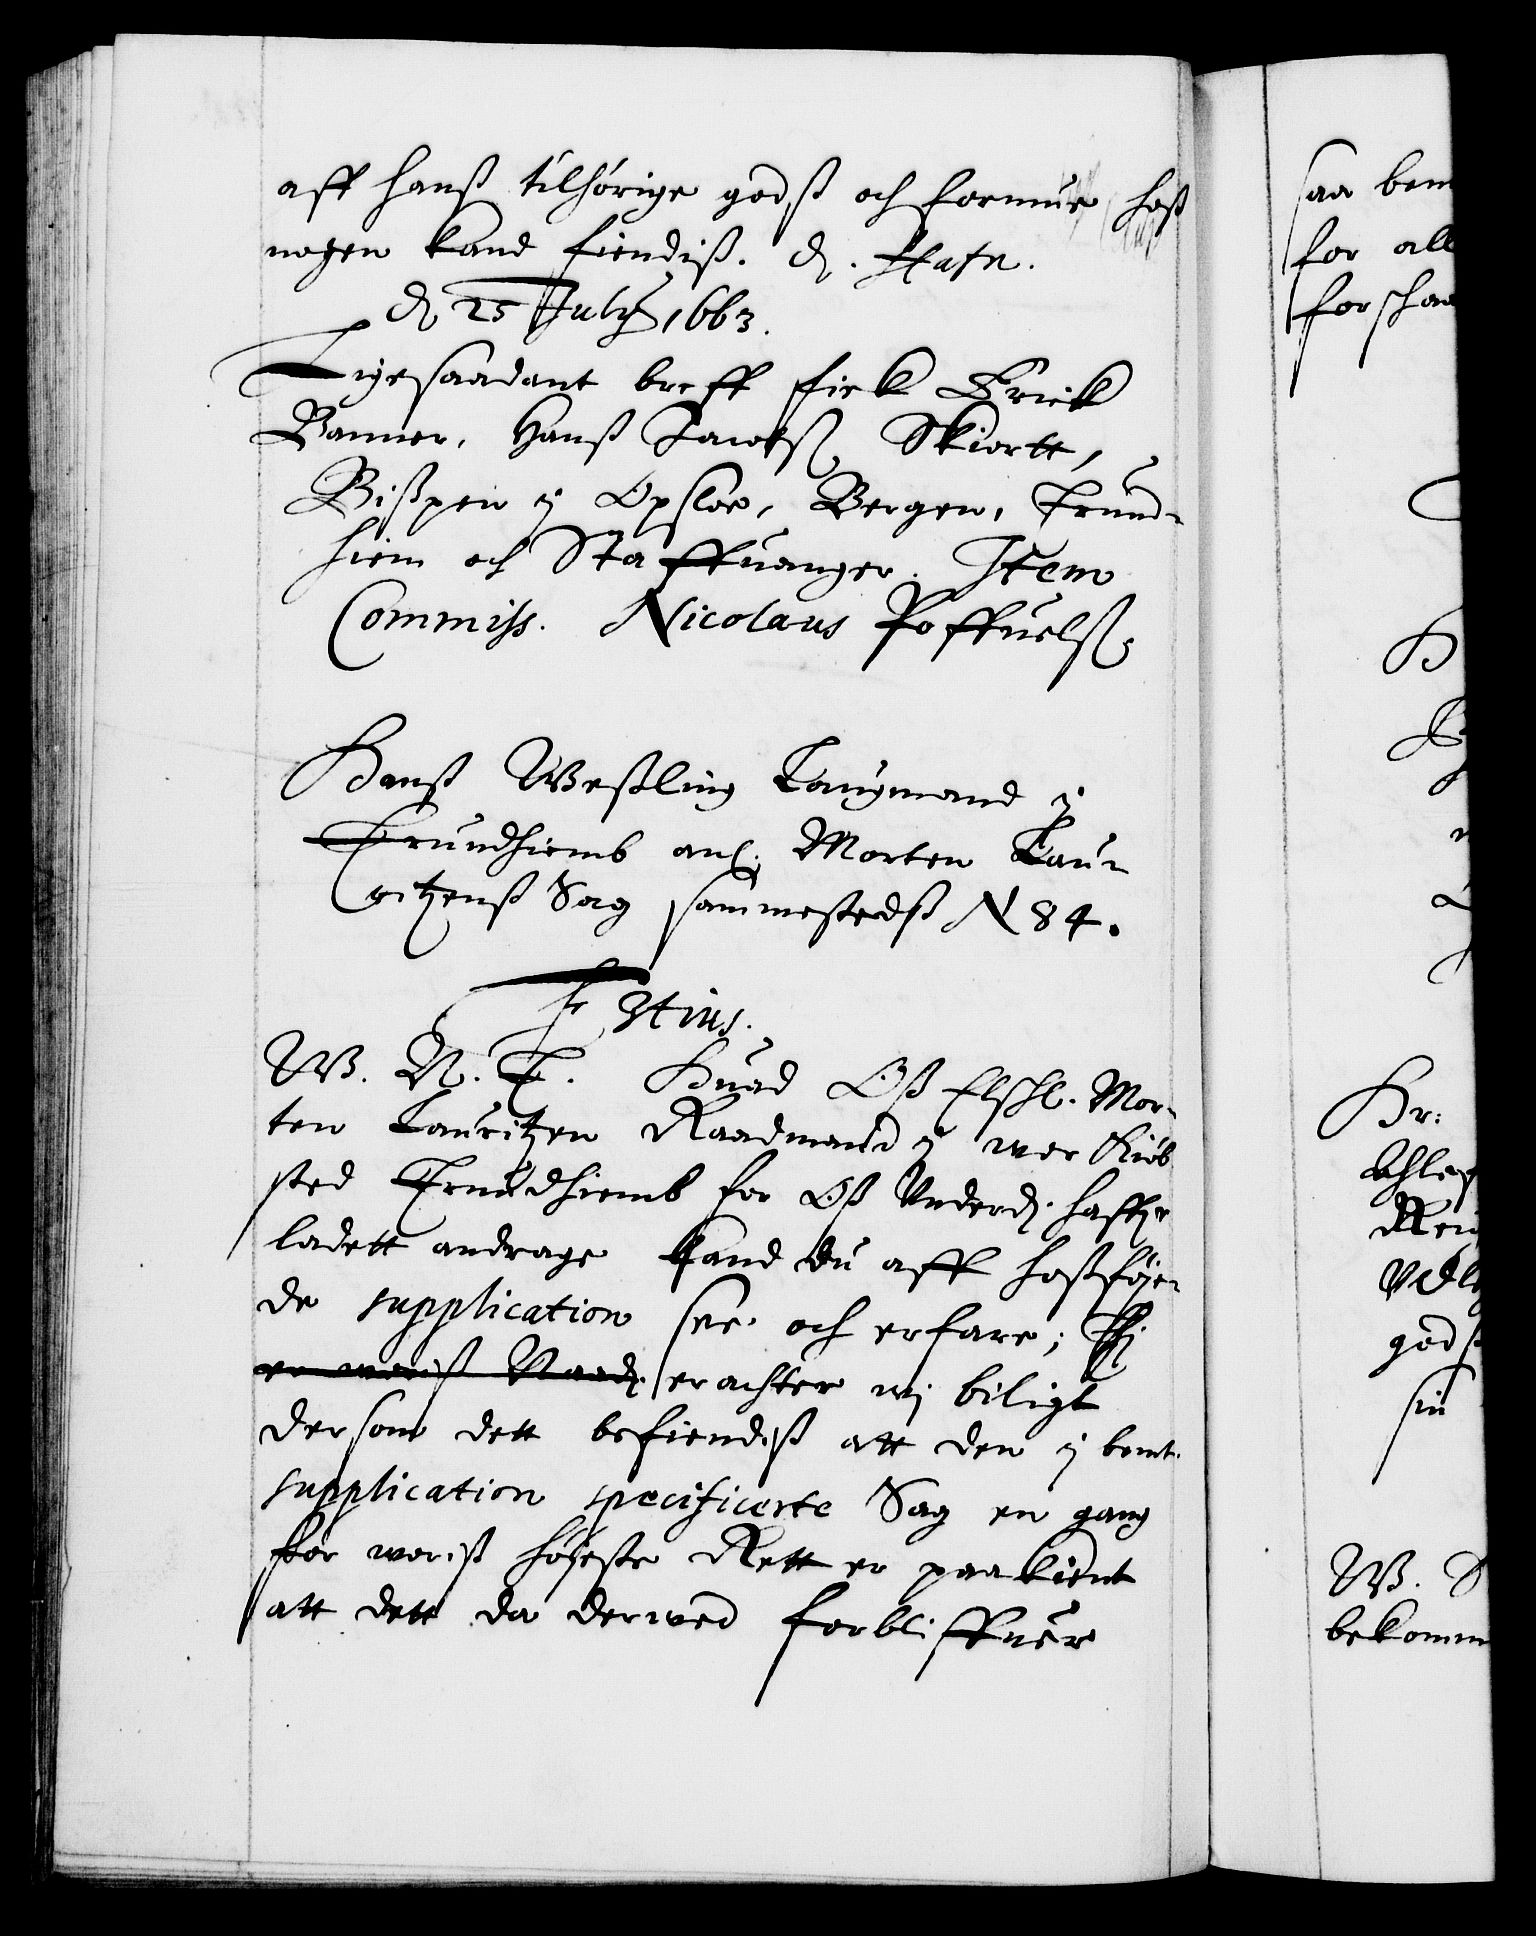 aff hanß tilhørige godß och formue hoß
nogen kand fiendiß. D. Hafn.
D 25 July 1663.
Ligesaadant breff fick Erick
Banner, Hanß Jacobß Skiortt,
Bißpen ij Opsloe, Bergen, Trund-
hiem och Staffuanger. Item
Commiss. Nicolaus Poffuelß.
Hanß Weßling Laugmand ij
Trundhiemb anl. Morten Lau-
ritzenß Sag sammestedß N 84.
F 3tius.
W. N. T. Huad Oß Elschl. Mor-
ten Lauritzen Raadmand ij wor Kiøb
sted Trundhiemb for Oß Underd. haffr
ladett andrage kand du aff hoßføjen-
de supplication see och erfare; Thi
er woriß Naad. erachter wj biligt
dersom dett befiendiß att den ij bemt.
supplication specificerte Sag en gang
for woriß høyeste Rett er paakient
att dett da derwed forbliffuer
saa bem
for all
forschaa
H
Hr:
Uhle
Rei
Vdl
godß
sin
W.
bekomm